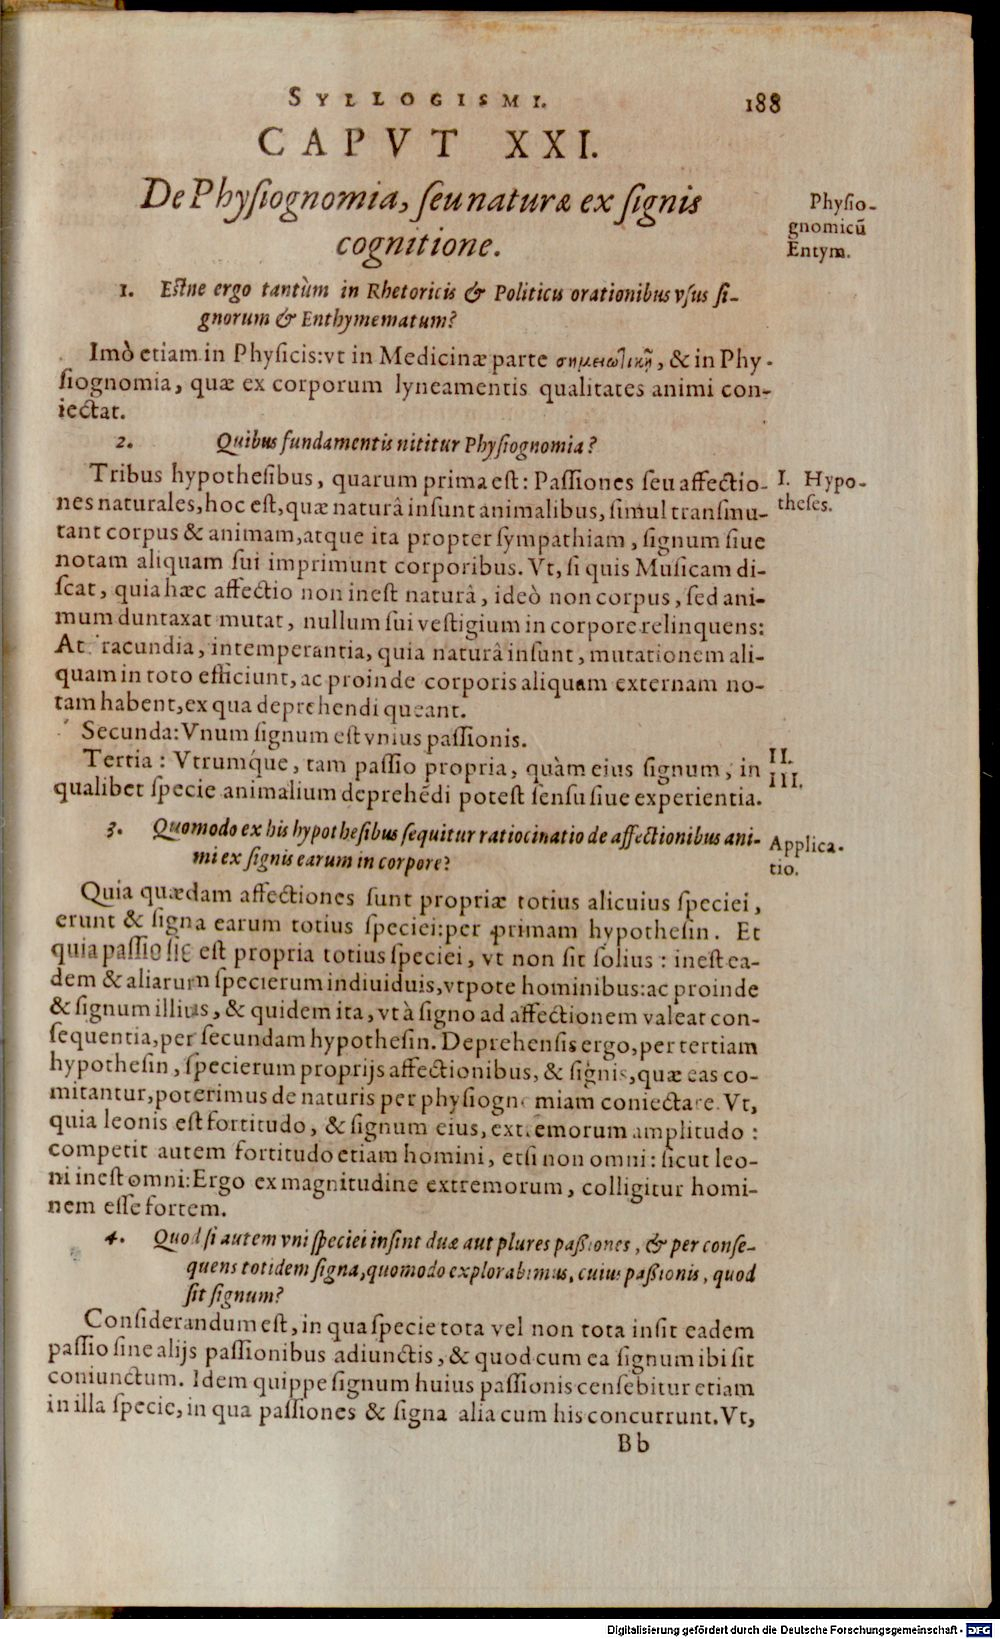 SYLLOGISMI. 188
CAPVT XXI.
De Physiognomia, seu naturæ ex signis
cognitione.
Physio-
gnomicũ
Entym.
1. Estne ergo tantùm in Rhetoricis & Politicis orationibus vsus si-
gnorum & Enthymematum?
Imò etiam in Physicis: vt in Medicinæ parte σημειωτικῇ, & in Phy-
siognomia, quæ ex corporum lyneamentis qualitates animi con-
iectat.
2. Quibus fundamentis nititur Physiognomia?
Tribus hypothesibus, quarum prima est: Passiones seu affectio-
nes naturales, hoc est, quæ naturâ insunt animalibus, simul transmu-
tant corpus & animam, atque ita propter sympathiam, signum siue
notam aliquam sui imprimunt corporibus. Vt, si quis Musicam di-
scat, quia hæc affectio non inest naturâ, ideò non corpus, sed ani-
mum duntaxat mutat, nullum sui vestigium in corpore relinquens:
At racundia, intemperantia, quia naturâ insunt, mutationem ali-
quam in toto efficiunt, ac proinde corporis aliquam externam no-
tam habent, ex qua deprehendi queant.
I. Hypo-
theses.
Secunda: Vnum signum est vnius passionis.
Tertia: Vtrumq́ue, tam passio propria, quàm eius signum, in
qualibet specie animalium deprehẽdi potest sensu siue experientia.
II.
III.
3. Quomodo ex his hypothesibus sequitur ratiocinatio de affectionibus ani-
mi ex signis earum in corpore?
Applica-
tio.
Quia quædam affectiones sunt propriæ totius alicuius speciei,
erunt & signa earum totius speciei: per primam hypothesin. Et
quia passio sic est propria totius speciei, vt non sit solius: inest ea-
dem & aliarum specierum indiuiduis, vtpote hominibus: ac proinde
& signum illius, & quidem ita, vt à signo ad affectionem valeat con-
sequentia, per secundam hypothesin. Deprehensis ergo, per tertiam
hypothesin, specierum proprijs affectionibus, & signis, quæ eas co-
mitantur, poterimus de naturis per physiognomiam coniectare. Vt,
quia leonis est fortitudo, & signum eius, extremorum amplitudo:
competit autem fortitudo etiam homini, etsi non omni: sicut leo-
ni inest omni: Ergo ex magnitudine extremorum, colligitur homi-
nem esse fortem.
4. Quod si autem vni speciei insint duæ aut plures paßiones, & per conse-
quens totidem signa, quomodo explorabimus, cuius paßionis, quod
sit signum?
Considerandum est, in qua specie tota vel non tota insit eadem
passio sine alijs passionibus adiunctis, & quod cum ea signum ibi sit
coniunctum. Idem quippe signum huius passionis censebitur etiam
in illa specie, in qua passiones & signa alia cum his concurrunt. Vt,
Bb
Digitalisierung gefördert durch die Deutsche Forschungsgemeinschaft - DFG